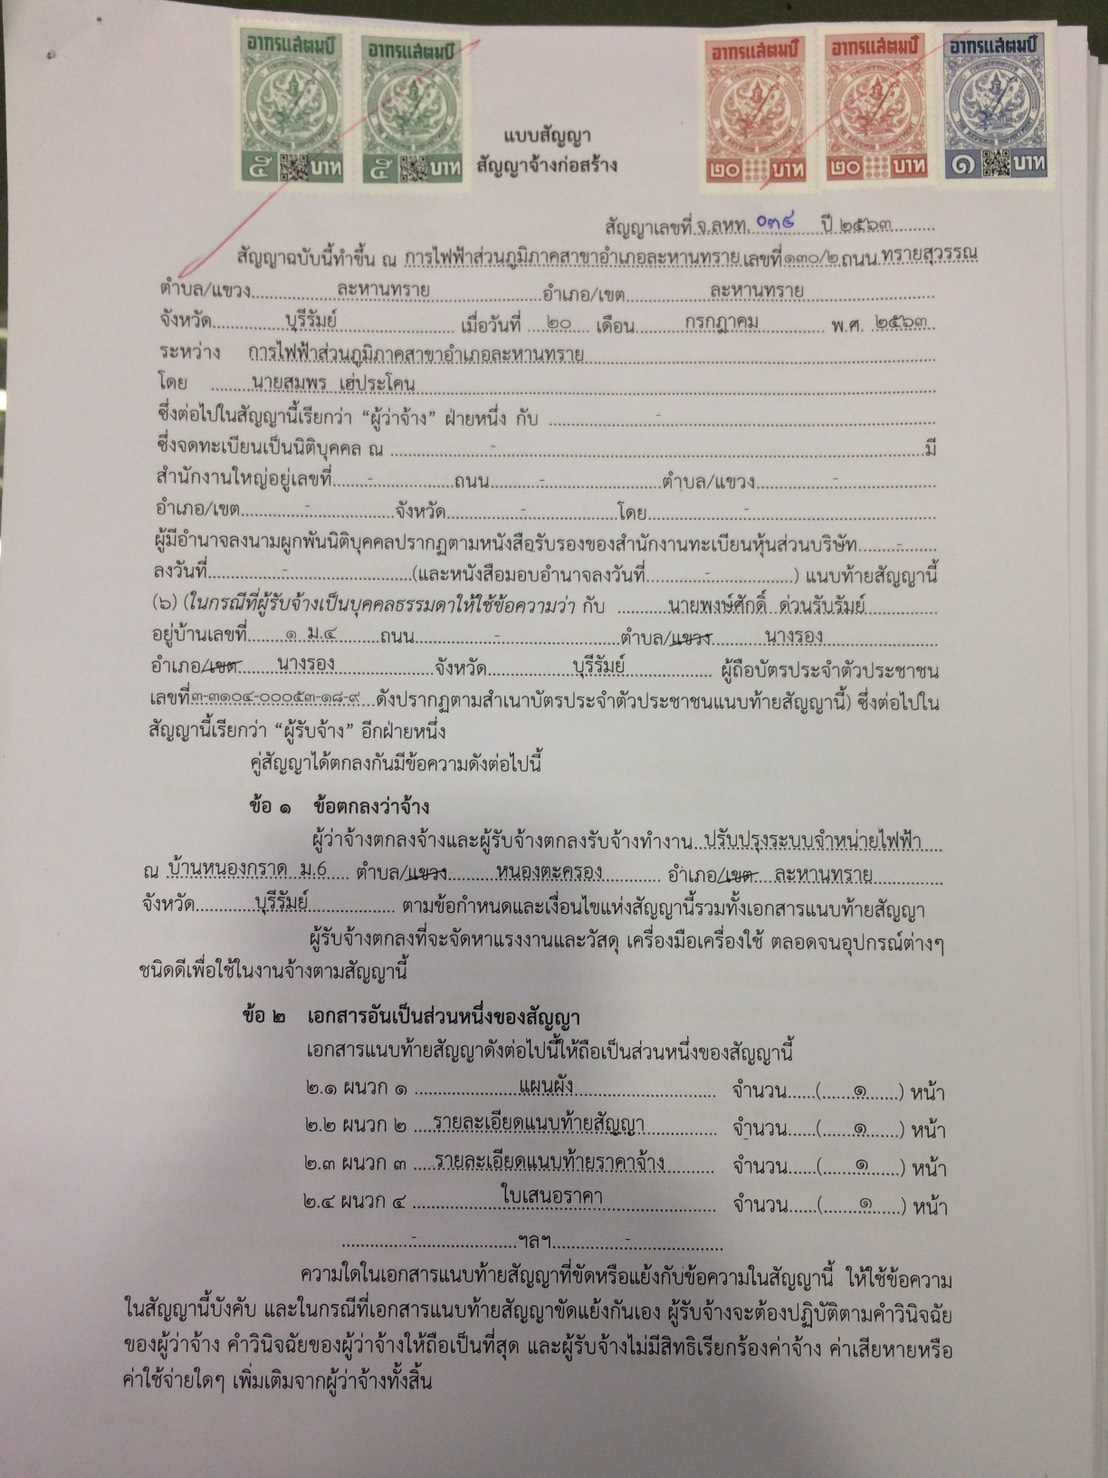 อากรแสตมป์ อากรแสตมป์ อากรแสตมป์ อากรแสตมป์ อากรแสตมป์
๕ บาท ๕ บาท ๒๐ บาท ๒๐ บาท ๑ บาท
แบบสัญญา
สัญญาจ้างก่อสร้าง
สัญญาเลขที่ จ.ลหท. ๐๓๙ ปี ๒๕๖๓
สัญญาฉบับนี้ทำขึ้น ณ การไฟฟ้าส่วนภูมิภาคสาขาอำเภอละหานทราย เลขที่ ๑๓๐/๒ ถนน ทรายสุวรรณ
ตำบล/แขวง ละหานทราย อำเภอ/เขต ละหานทราย
จังหวัด บุรีรัมย์ เมื่อวันที่ ๒๐ เดือน กรกฎาคม พ.ศ. ๒๕๖๓
ระหว่าง การไฟฟ้าส่วนภูมิภาคสาขาอำเภอละหานทราย
โดย นายสมพร เฮ่ประโคน
ซึ่งต่อไปในสัญญานี้เรียกว่า “ผู้ว่าจ้าง” ฝ่ายหนึ่ง กับ -
ซึ่งจดทะเบียนเป็นนิติบุคคล ณ - มี
สำนักงานใหญ่อยู่เลขที่ - ถนน - ตำบล/แขวง -
อำเภอ/เขต - จังหวัด - โดย -
ผู้มีอำนาจลงนามผูกพันนิติบุคคลปรากฏตามหนังสือรับรองของสำนักงานทะเบียนหุ้นส่วนบริษัท -
ลงวันที่ - (และหนังสือมอบอำนาจลงวันที่ - ) แนบท้ายสัญญานี้
(๖) (ในกรณีที่ผู้รับจ้างเป็นบุคคลธรรมดาให้ใช้ข้อความว่า กับ นายพงษ์ศักดิ์ ด่วนรับรัมย์
อยู่บ้านเลขที่ ๑ ม.๔ ถนน - ตำบล/แขวง นางรอง
อำเภอ/เขต นางรอง จังหวัด บุรีรัมย์ ผู้ถือบัตรประจำตัวประชาชน
เลขที่ ๓-๓๑๐๔-๐๐๐๕๓-๑๘-๙ ดังปรากฏตามสำเนาบัตรประจำตัวประชาชนแนบท้ายสัญญานี้) ซึ่งต่อไปใน
สัญญานี้เรียกว่า “ผู้รับจ้าง” อีกฝ่ายหนึ่ง
คู่สัญญาได้ตกลงกันมีข้อความดังต่อไปนี้
ข้อ ๑ ข้อตกลงว่าจ้าง
ผู้ว่าจ้างตกลงจ้างและผู้รับจ้างตกลงรับจ้างทำงาน ปรับปรุงระบบจำหน่ายไฟฟ้า
ณ บ้านหนองกราด ม.6 ตำบล/แขวง หนองตะครอง อำเภอ/เขต ละหานทราย
จังหวัด บุรีรัมย์ ตามข้อกำหนดและเงื่อนไขแห่งสัญญานี้รวมทั้งเอกสารแนบท้ายสัญญา
ผู้รับจ้างตกลงที่จะจัดหาแรงงานและวัสดุ เครื่องมือเครื่องใช้ ตลอดจนอุปกรณ์ต่างๆ
ชนิดดีเพื่อใช้ในงานจ้างตามสัญญานี้
ข้อ ๒ เอกสารอันเป็นส่วนหนึ่งของสัญญา
เอกสารแนบท้ายสัญญาดังต่อไปนี้ให้ถือเป็นส่วนหนึ่งของสัญญานี้
๒.๑ ผนวก ๑ แผนผัง จำนวน (๑) หน้า
๒.๒ ผนวก ๒ รายละเอียดแนบท้ายสัญญา จำนวน (๑) หน้า
๒.๓ ผนวก ๓ รายละเอียดแนบท้ายราคาจ้าง จำนวน (๑) หน้า
๒.๔ ผนวก ๔ ใบเสนอราคา จำนวน (๑) หน้า
- ฯลฯ -
ความใดในเอกสารแนบท้ายสัญญาที่ขัดหรือแย้งกับข้อความในสัญญานี้ ให้ใช้ข้อความ
ในสัญญานี้บังคับ และในกรณีที่เอกสารแนบท้ายสัญญาขัดแย้งกันเอง ผู้รับจ้างจะต้องปฏิบัติตามคำวินิจฉัย
ของผู้ว่าจ้าง คำวินิจฉัยของผู้ว่าจ้างให้ถือเป็นที่สุด และผู้รับจ้างไม่มีสิทธิเรียกร้องค่าจ้าง ค่าเสียหายหรือ
ค่าใช้จ่ายใดๆ เพิ่มเติมจากผู้ว่าจ้างทั้งสิ้น